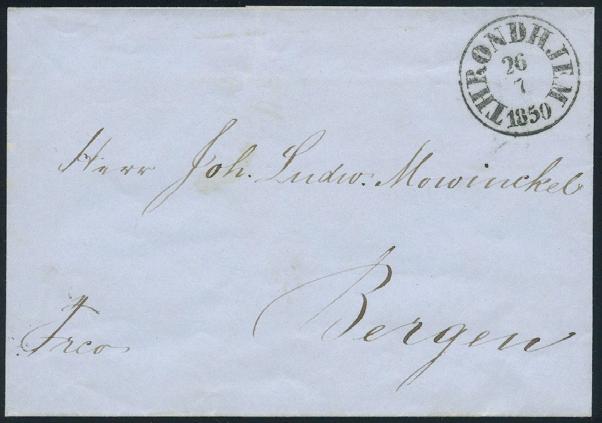 THRONDHJEM
26
7
1850
Herr Joh. Ludw. Mowinckel
Bergen
Frco